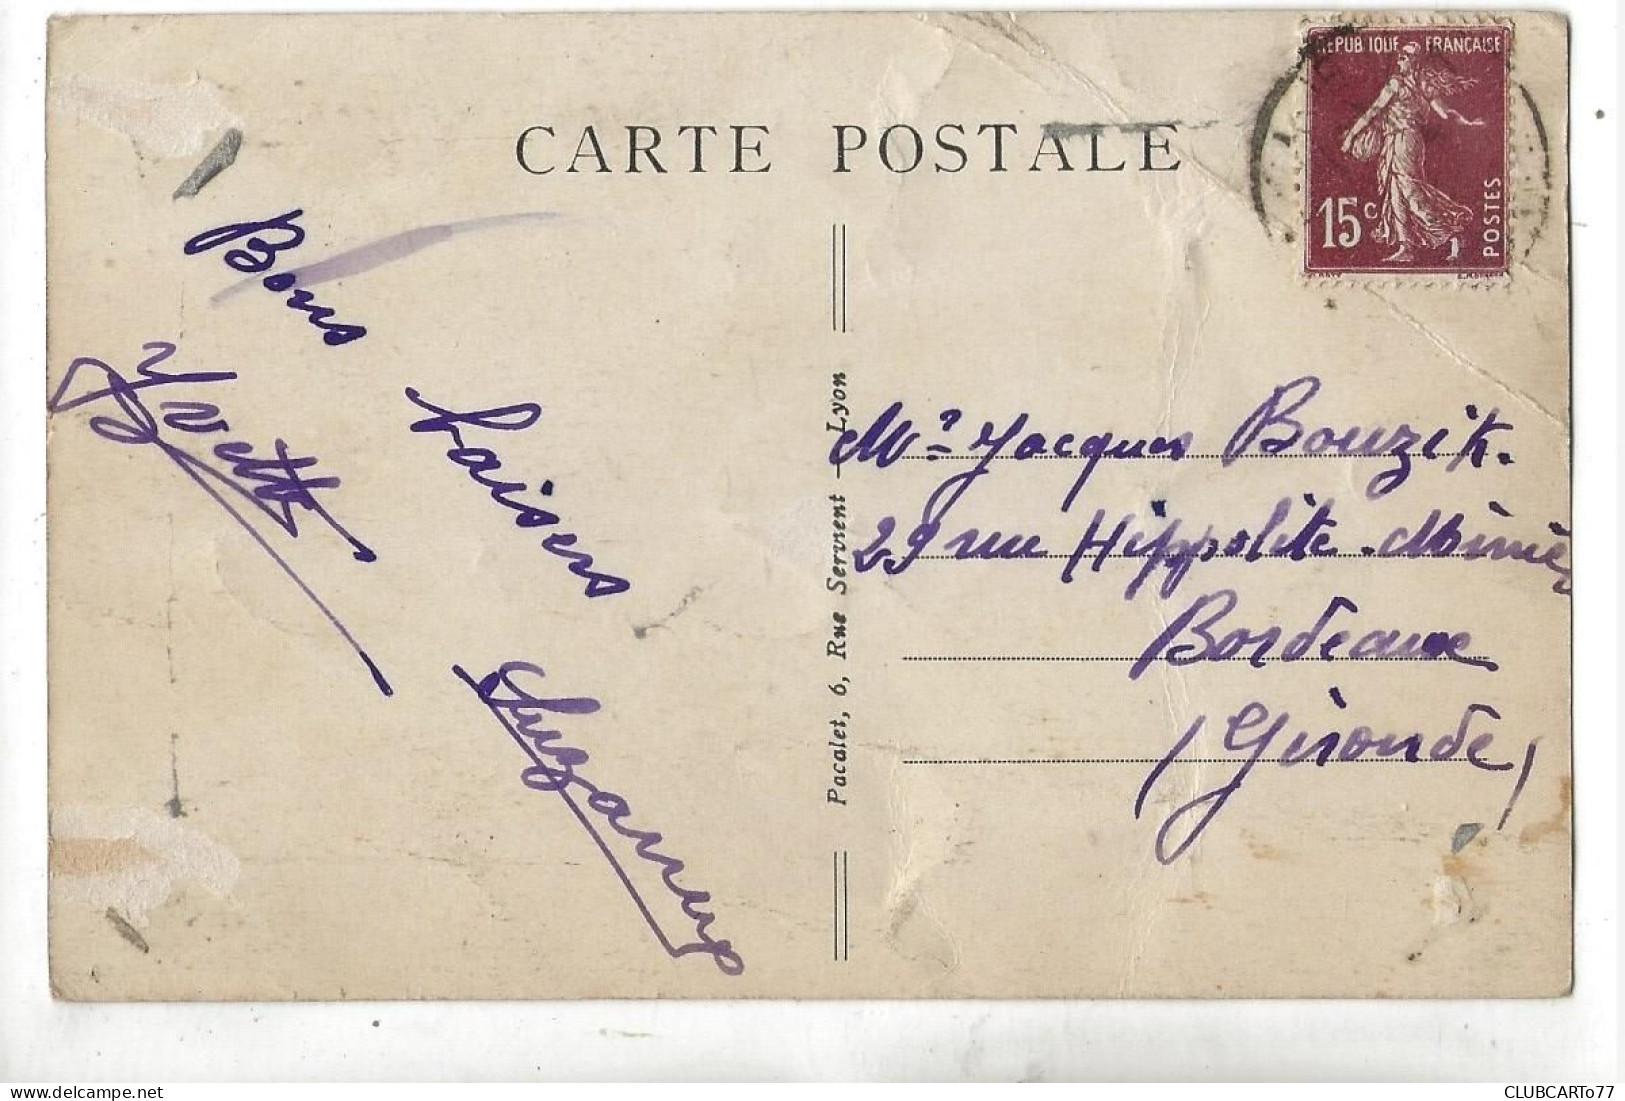 CARTE POSTALE
REPUBLIQUE FRANÇAISE
15c
POSTES
Bons baisers
Yvette
Suzanne
Pacalet, 6, Rue Servient - Lyon
Mr Jacques Bouzik.
29 rue Hippolite-Minier
Bordeaux
(Gironde)
CLUBCARTo77